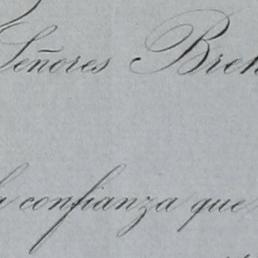 Señores Bren
la confianza que